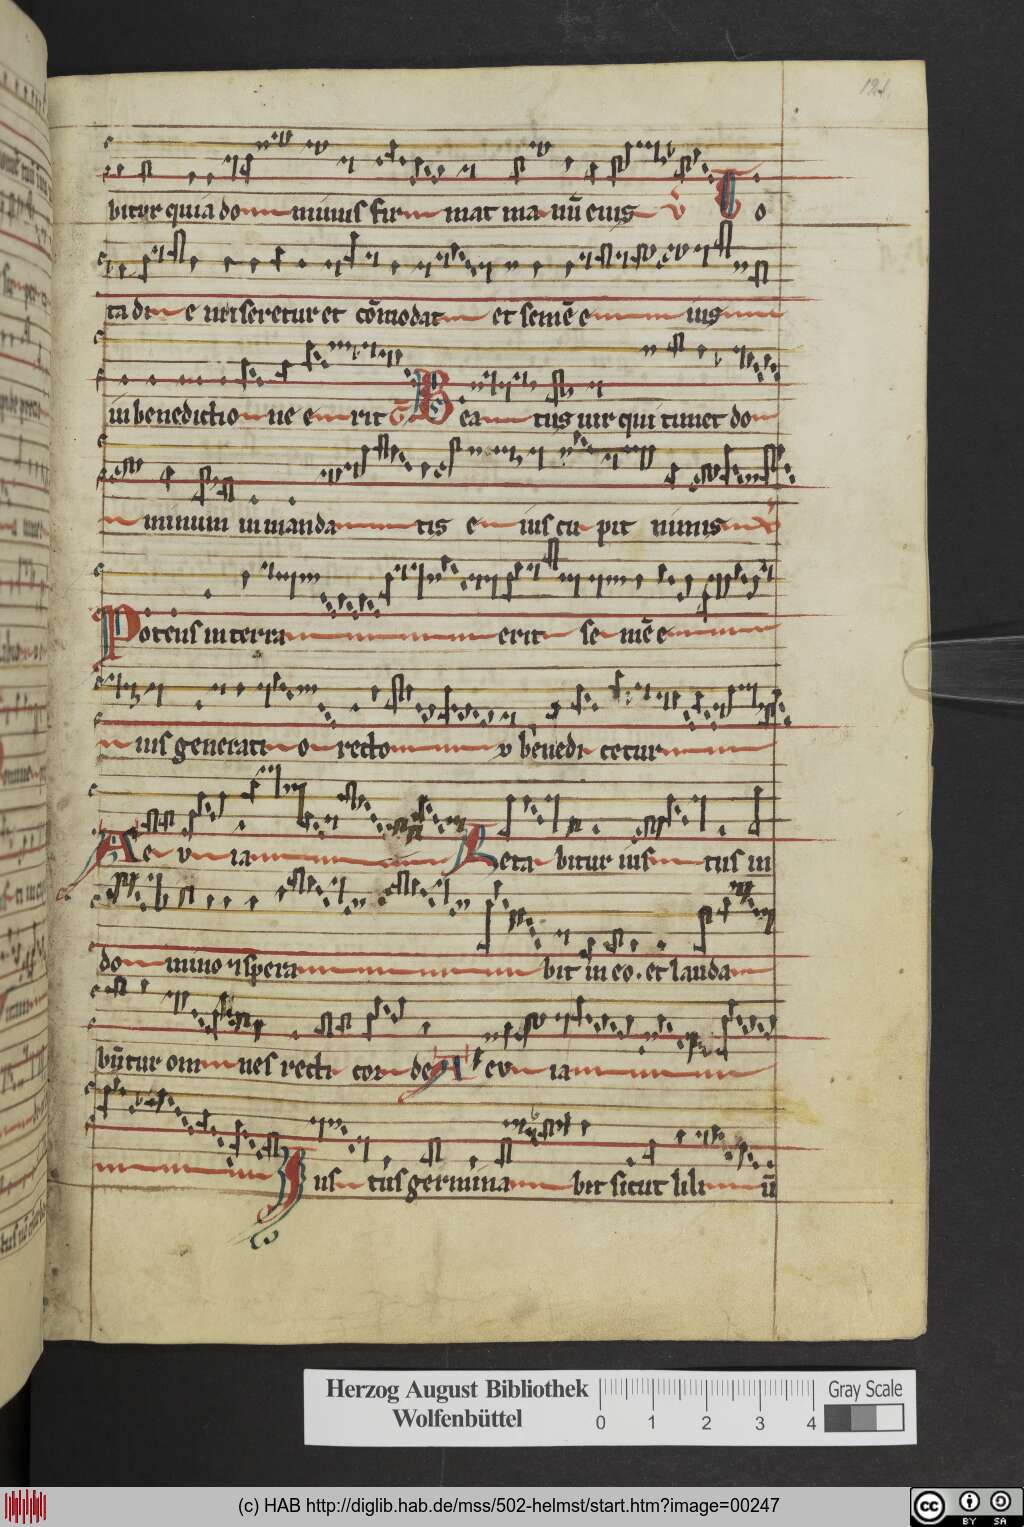 bitur quia do minus fir mat ma nū eius v̄ T o
ta di e miseretur et cōmodat et semē e ius
in benedictio ne e rit B ea tus uir qui timet do
minum in manda tis e ius cu pit nimis
Potens in terra erit se mē e
ius generati o recto v benedi cetur
A e v ia Leta bitur ius tus in
do mino ⁊ spera bit in eo . et lauda
būtur om nes recti cor de A e v ia
Jus tus germina bit sicut lili ū
Herzog August Bibliothek
Wolfenbüttel
0 1 2 3 4
Gray Scale
(c) HAB http://diglib.hab.de/mss/502-helmst/start.htm?image=00247
cc BY SA